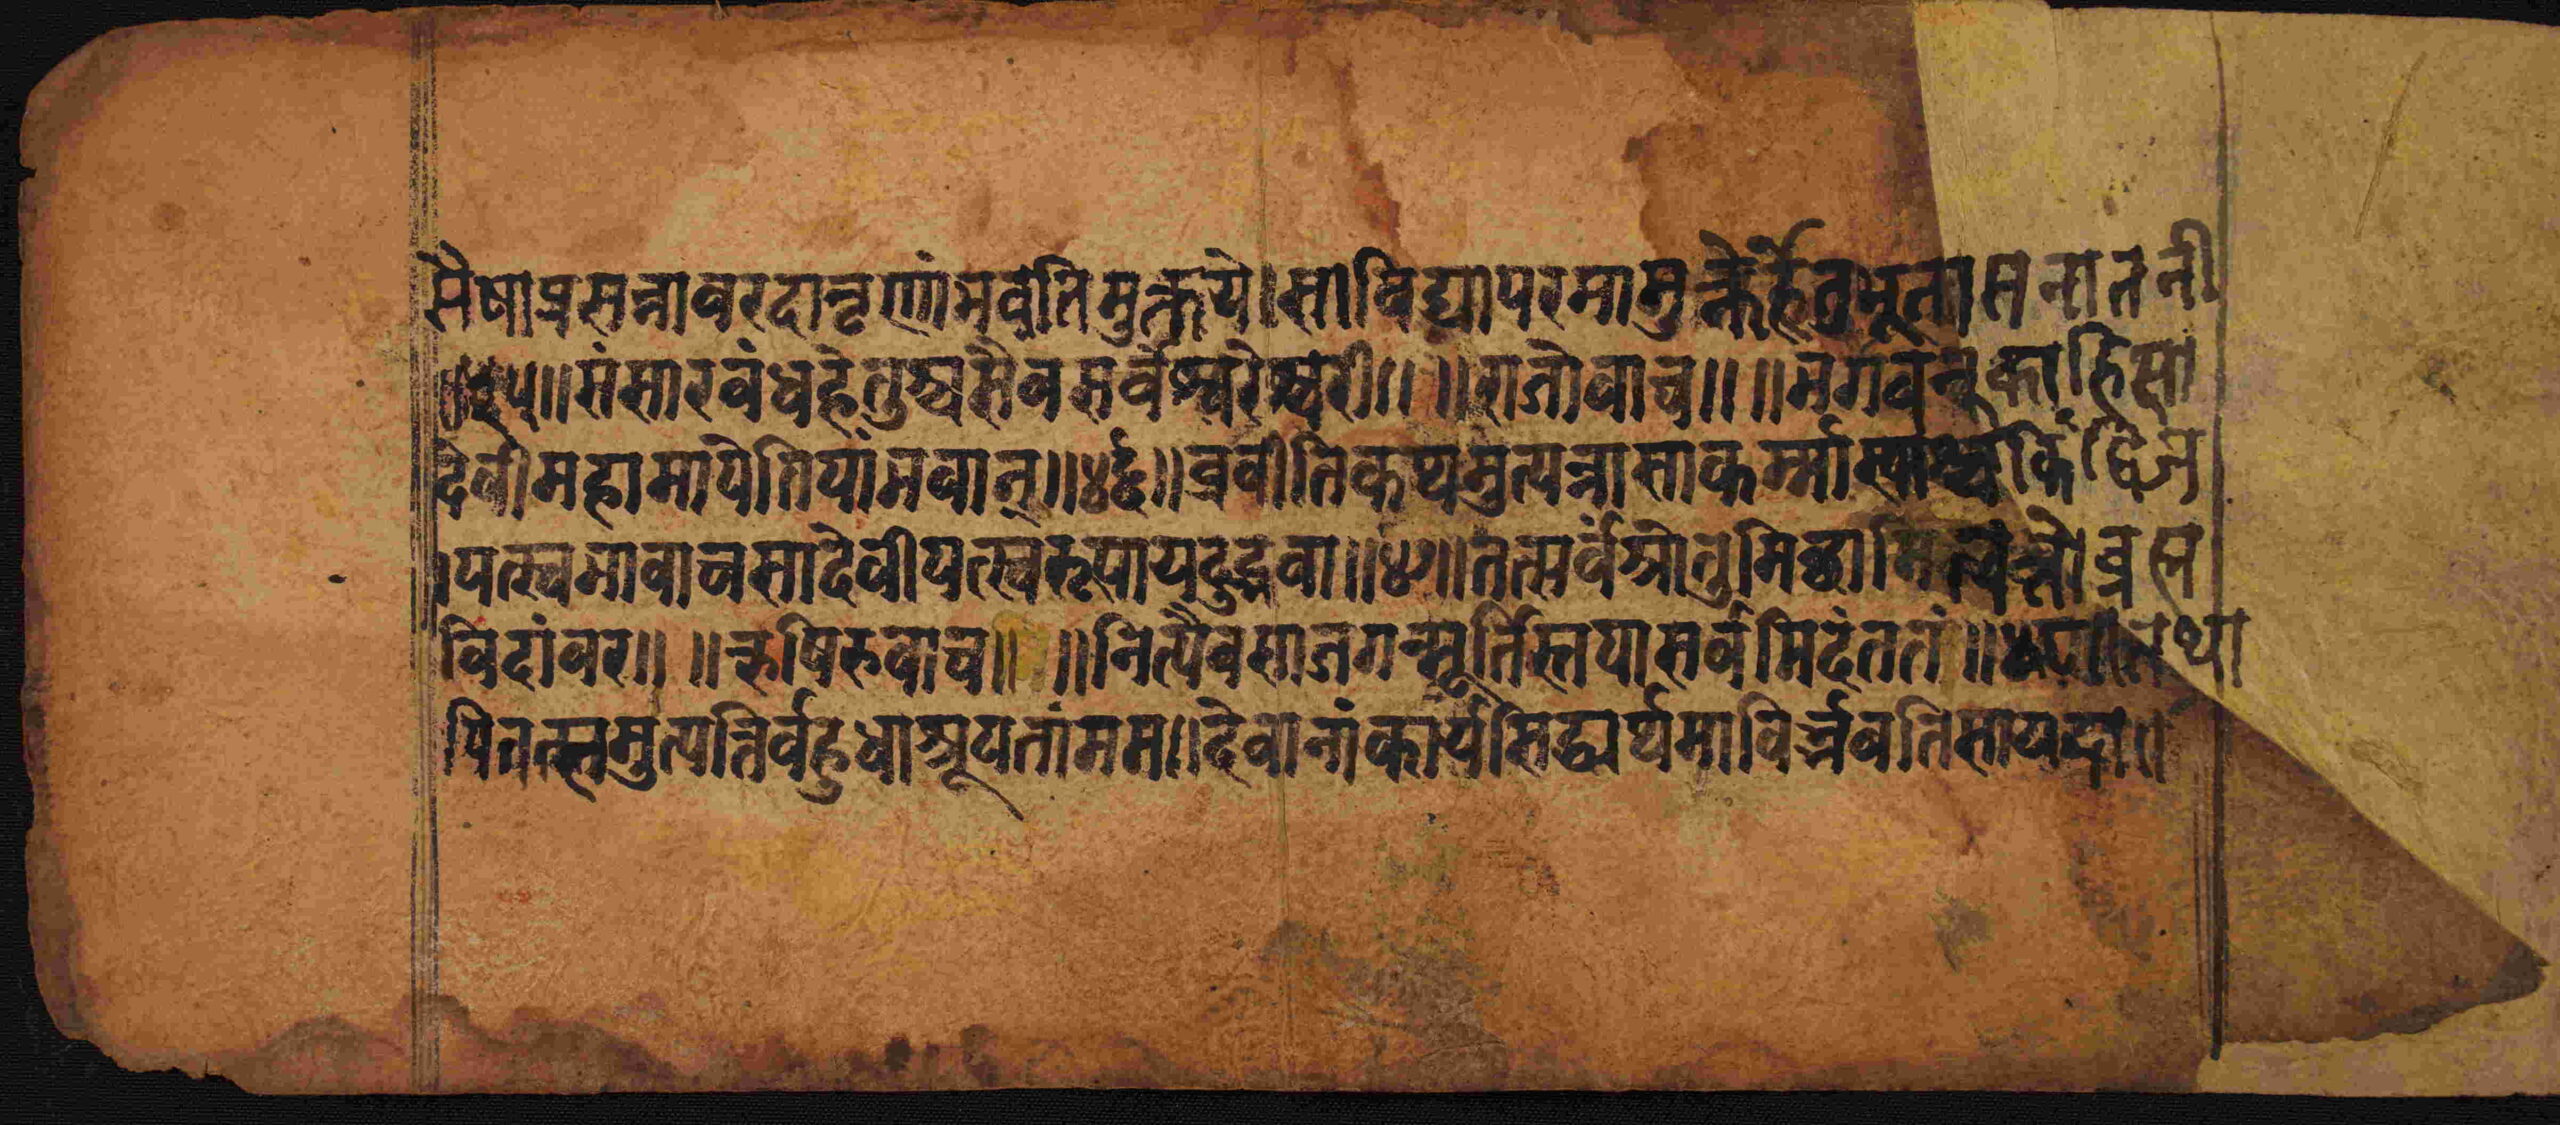 सैषाप्रसन्नावरदानृणांभवतिमुक्तये।साविद्यापरमामुक्तेर्हेतुभूतासनातनी
॥४५॥संसारवंधहेतुश्चसैवसर्वेश्वरेश्वरी॥ ॥राजोवाच॥ ॥भगवन्काहिसा
देवीमहामायेतियांभवान्॥४६॥व्रवीतिकथमुत्पन्नासाकर्म्मास्याश्चकिंद्विज
।यत्स्वभावाचसादेवीयत्स्वरूपायदुद्भवा॥४७॥तत्सर्वंश्रोतुमिच्छामित्वत्तोव्रह्म
विदांवर॥ ॥ऋषिरुवाच॥ ॥नित्यैवसाजगन्मूर्तिस्तयासर्वमिदंततं॥४८॥तथा
पितत्समुत्पत्तिर्वहुधाश्रूयतांमम॥देवानांकार्यसिद्ध्यर्थमाविर्भवतिसायदा॥